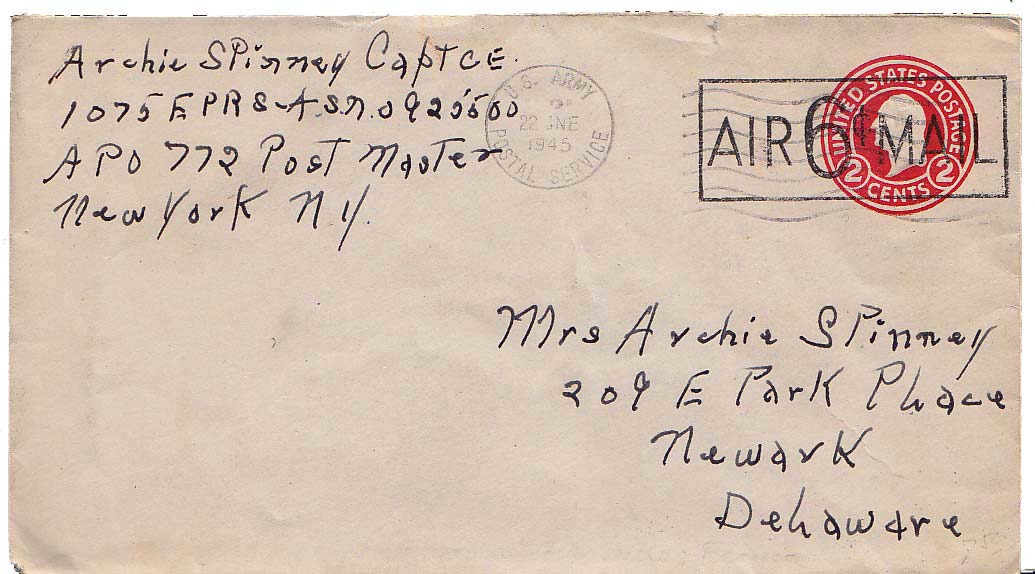 Archie Spinney Capt CE.
1075 EPRS - A.S.N. 0925500
APO 772 Post Master
New York N.Y.
U.S. ARMY
22 JNE
1945
POSTAL SERVICE
UNITED STATES POSTAGE
AIR 6¢ MAIL
2 CENTS 2
Mrs Archie Spinney
209 E Park Place
Newark
Delaware